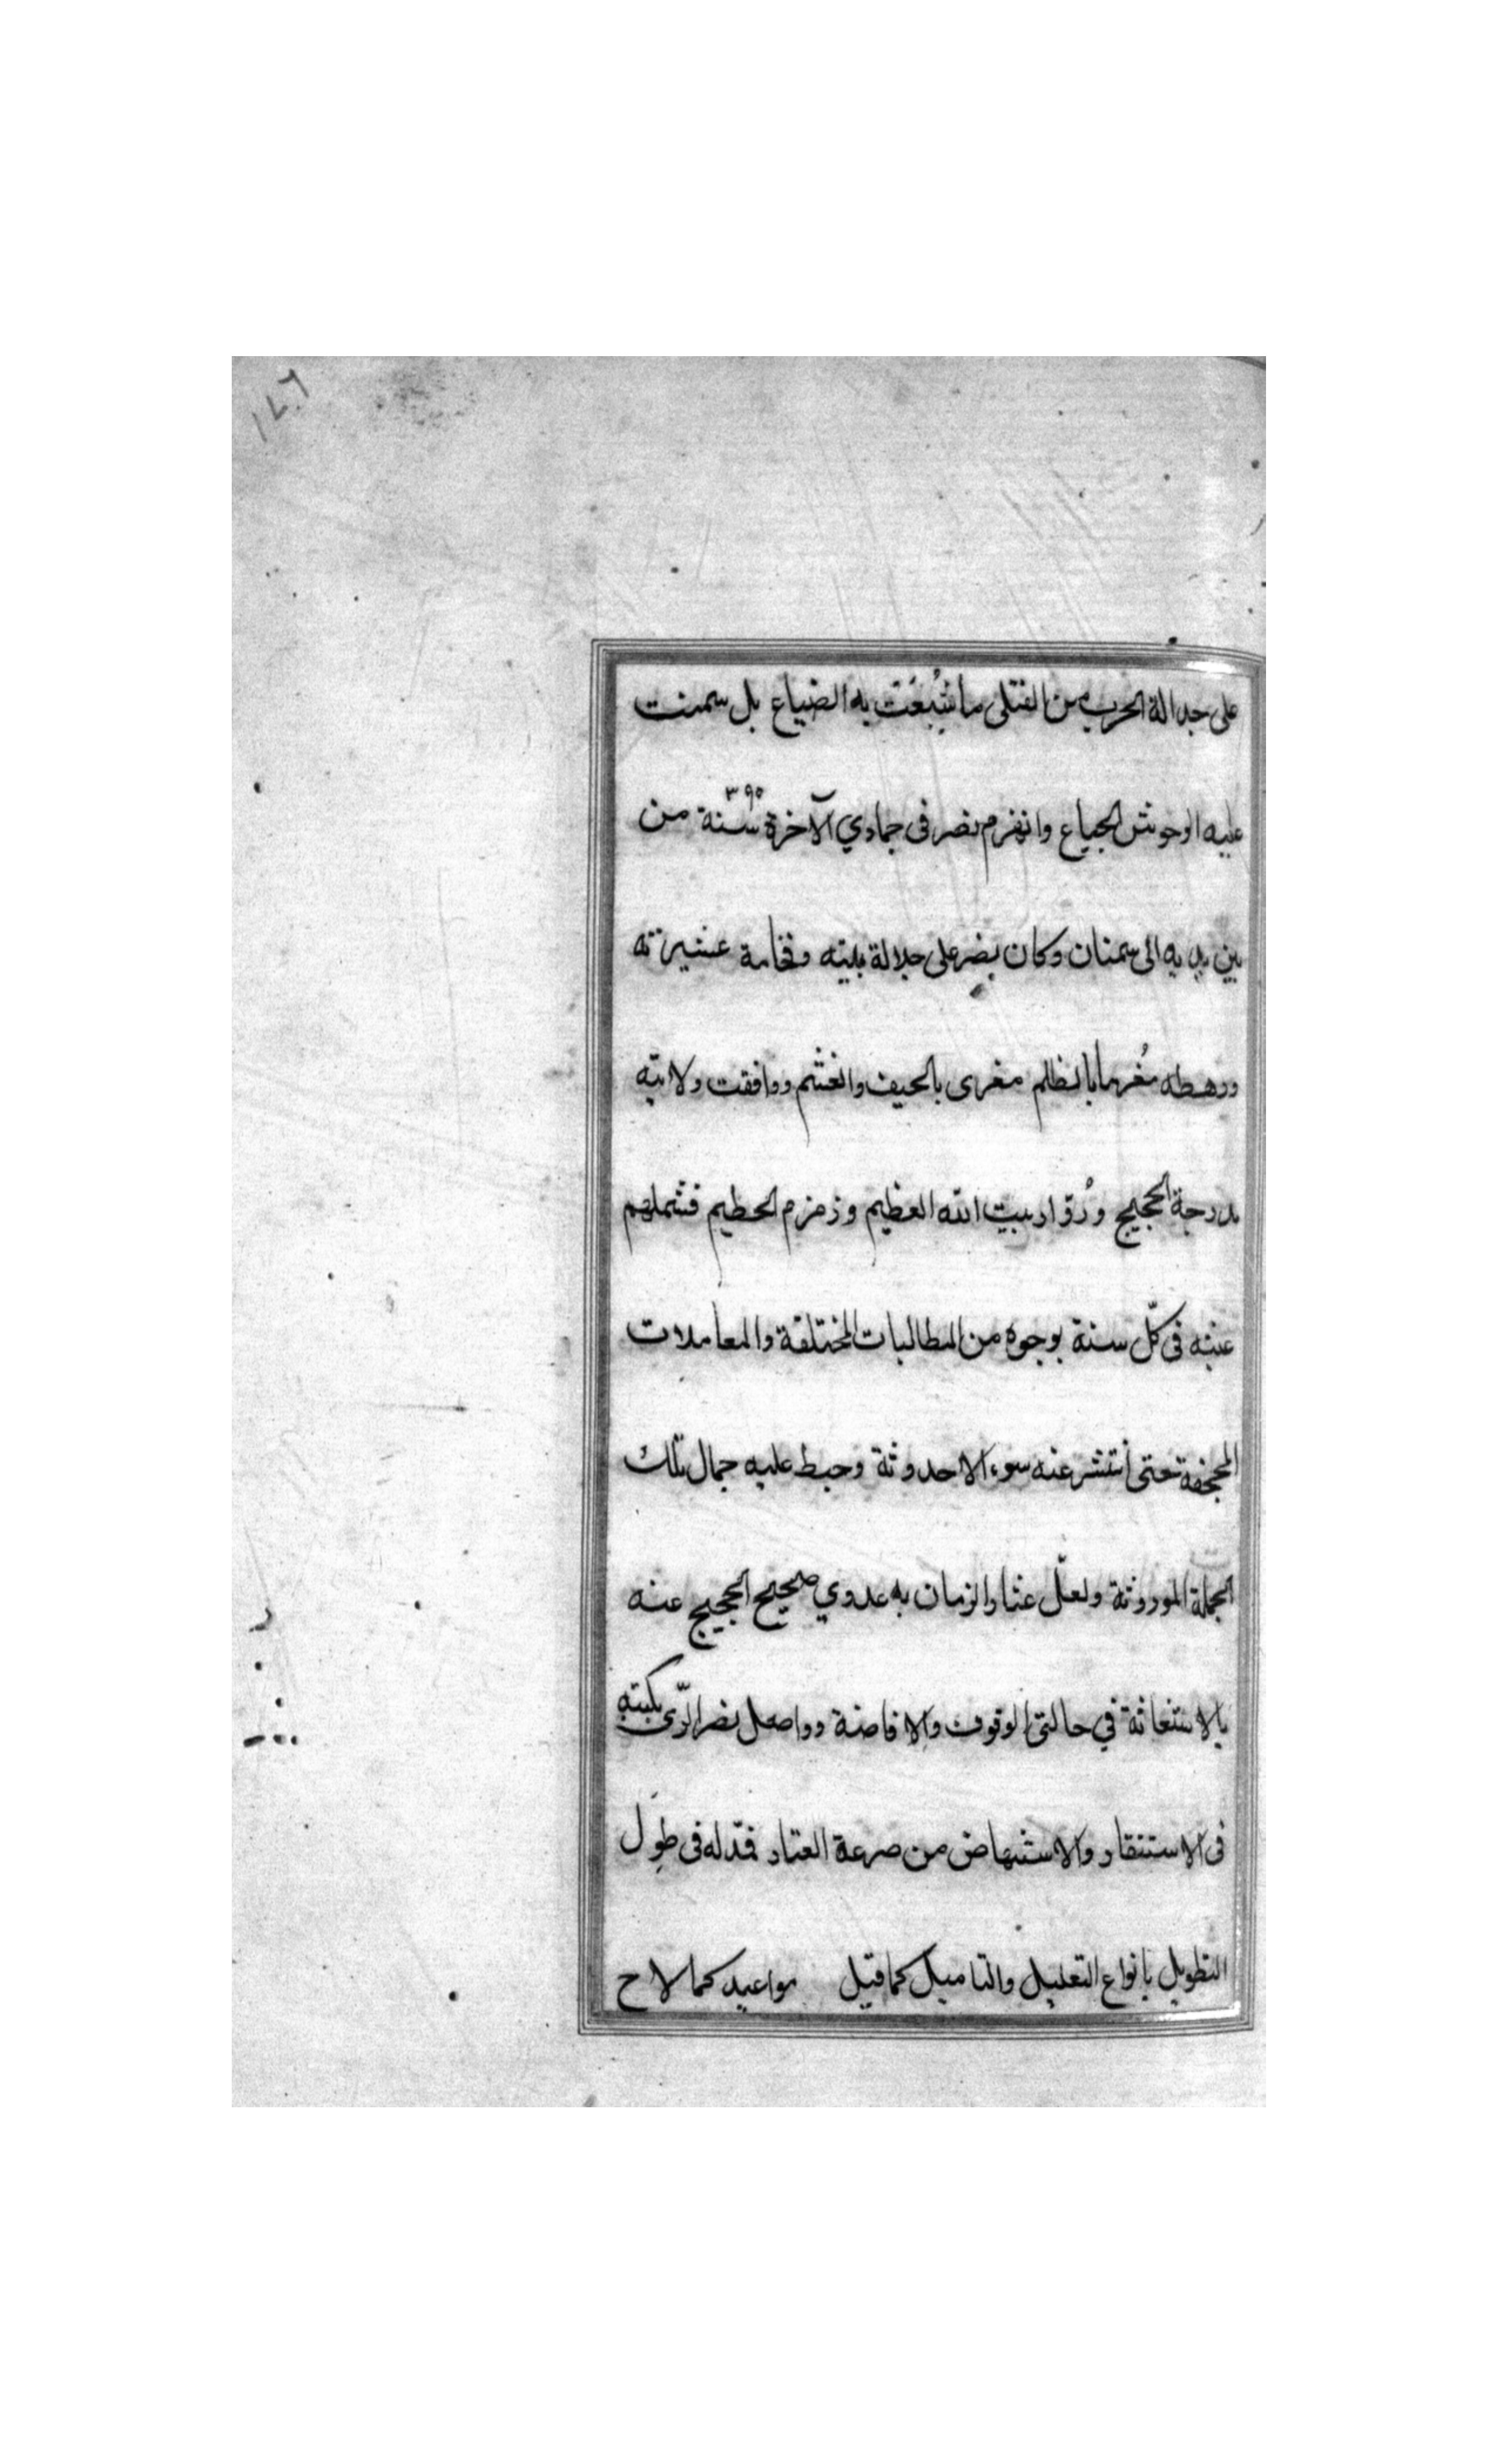 ١٤٦
على جدالة الحرب من القتلى ما شبُعَت به الضياع بل سمنت
عليه الوحوش الجياع وانهزم نصر فى جمادي الآخرة سنة ٣٩٥ من
بين يديه الى سمنان وكان نصر على جلالة بيته وفخامة عشيرته
ورهطه مُغرما بالظلم مغرى بالحيف والغشم ووافقت ولايته
مدرجة الحجيج وزُوّار بيت الله العظيم وزمزم الحطيم فشملهم
عنته فى كلّ سنة بوجوه من المطالبات المختلفة والمعاملات
المجحفة حتى انتشر عنه سوء الاحدوثة وحبط عليه جمال تلك
الجملة الموروثة ولعلّ عثار الزمان به عدوي ضجيج الحجيج عنه
بالاستغاثة في حالتى الوقوف والافاضة وواصل نصر الرّى بكتبه
فى الاستنقاد والاستنهاض من صرعة العثار فمدّ له فى طِوَل
التطويل بانواع التعليل والتاميل كما قيل مواعيد كما لاح